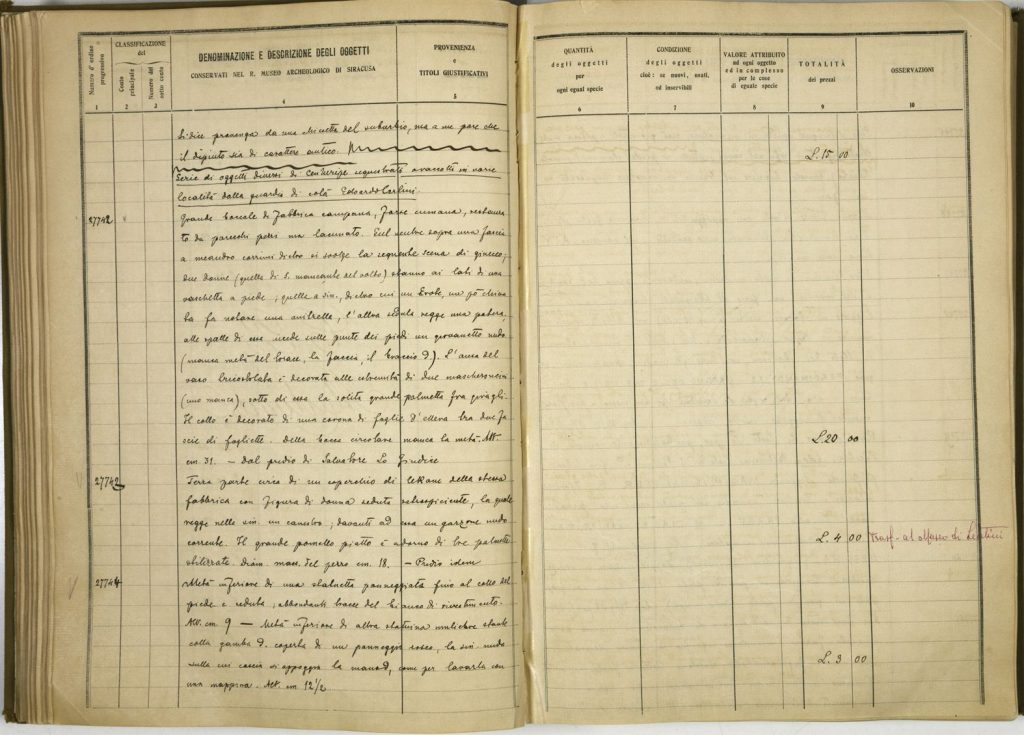 Numero d'ordine progressivo
CLASSIFICAZIONE del
Conto principale
Numero del sotto conto
DENOMINAZIONE E DESCRIZIONE DEGLI OGGETTI
CONSERVATI NEL R. MUSEO ARCHEOLOGICO DI SIRACUSA
PROVENIENZA
e
TITOLI GIUSTIFICATIVI
1 2 3 4 5
Si dice provenga da una del suburbio, ma a me pare che
il dipinto sia di carattere antico.
Serie di oggetti diversi di Centuripe sequestrati in varie
località dalla guardia di colà Edoardo Carlini.
27742
Grande boccale di fabbrica campana, forse cumana, restaura
to da parecchi pezzi ma lacunato. Sul ventre sopra una fascia
a meandro corrente si svolge la seguente scena di gineceo;
due donne (quella di S. mancante del volto) stanno ai lati di una
vaschetta a piede; quella a sin., dietro cui un Erote, un pò china
fa una l'altra seduta regge una patera,
alle spalle di essa incede sulle punte dei piedi un giovanetto nudo
(manca metà del torace, la faccia, il braccio d.). L'ansa del
vaso è decorata alle estremità di due mascheroncini
(uno manca), sotto di essa la solita grande palmetta fra girigli.
Il collo è decorato di una corona di foglie d'ellera tra due fa
scie di fogliette. Della bocca circolare manca la metà. Alt.
cm. 31. — Dal predio di Salvatore Lo Giudice
Terza parte circa di un coperchio di lekane della stessa
fabbrica con figura di donna seduta retrospiciente, la quale
regge nella sin. un canestro; davanti ad essa un garzone nudo
corrente. Il grande pomello piatto è adorno di tre palmette
stilizzate. Diam. mass. del pezzo cm. 18. — Predio idem
27744
Metà inferiore di una statuetta panneggiata fino al collo del
piede e seduta; abbondanti tracce del bianco di rivestimento.
Alt. cm 9 — Metà inferiore di altra statuina muliebre stante
colla gamba d. coperta di un panneggio roseo, la sin. nuda
sulla cui coscia si appoggia la mano d., come per lavarla con
una mappina. Alt. cm 12 1/2
QUANTITÀ
degli oggetti
per
ogni egual specie
CONDIZIONE
degli oggetti
cioè: se nuovi, usati,
od inservibili
VALORE ATTRIBUITO
ad ogni oggetto
ed in complesso
per le cose
di eguale specie
TOTALITÀ
dei prezzi
OSSERVAZIONI
6 7 8 9 10
L. 15 00
L. 20 00
L. 4 00 Trasf. al Museo di Lentini
L. 3 00